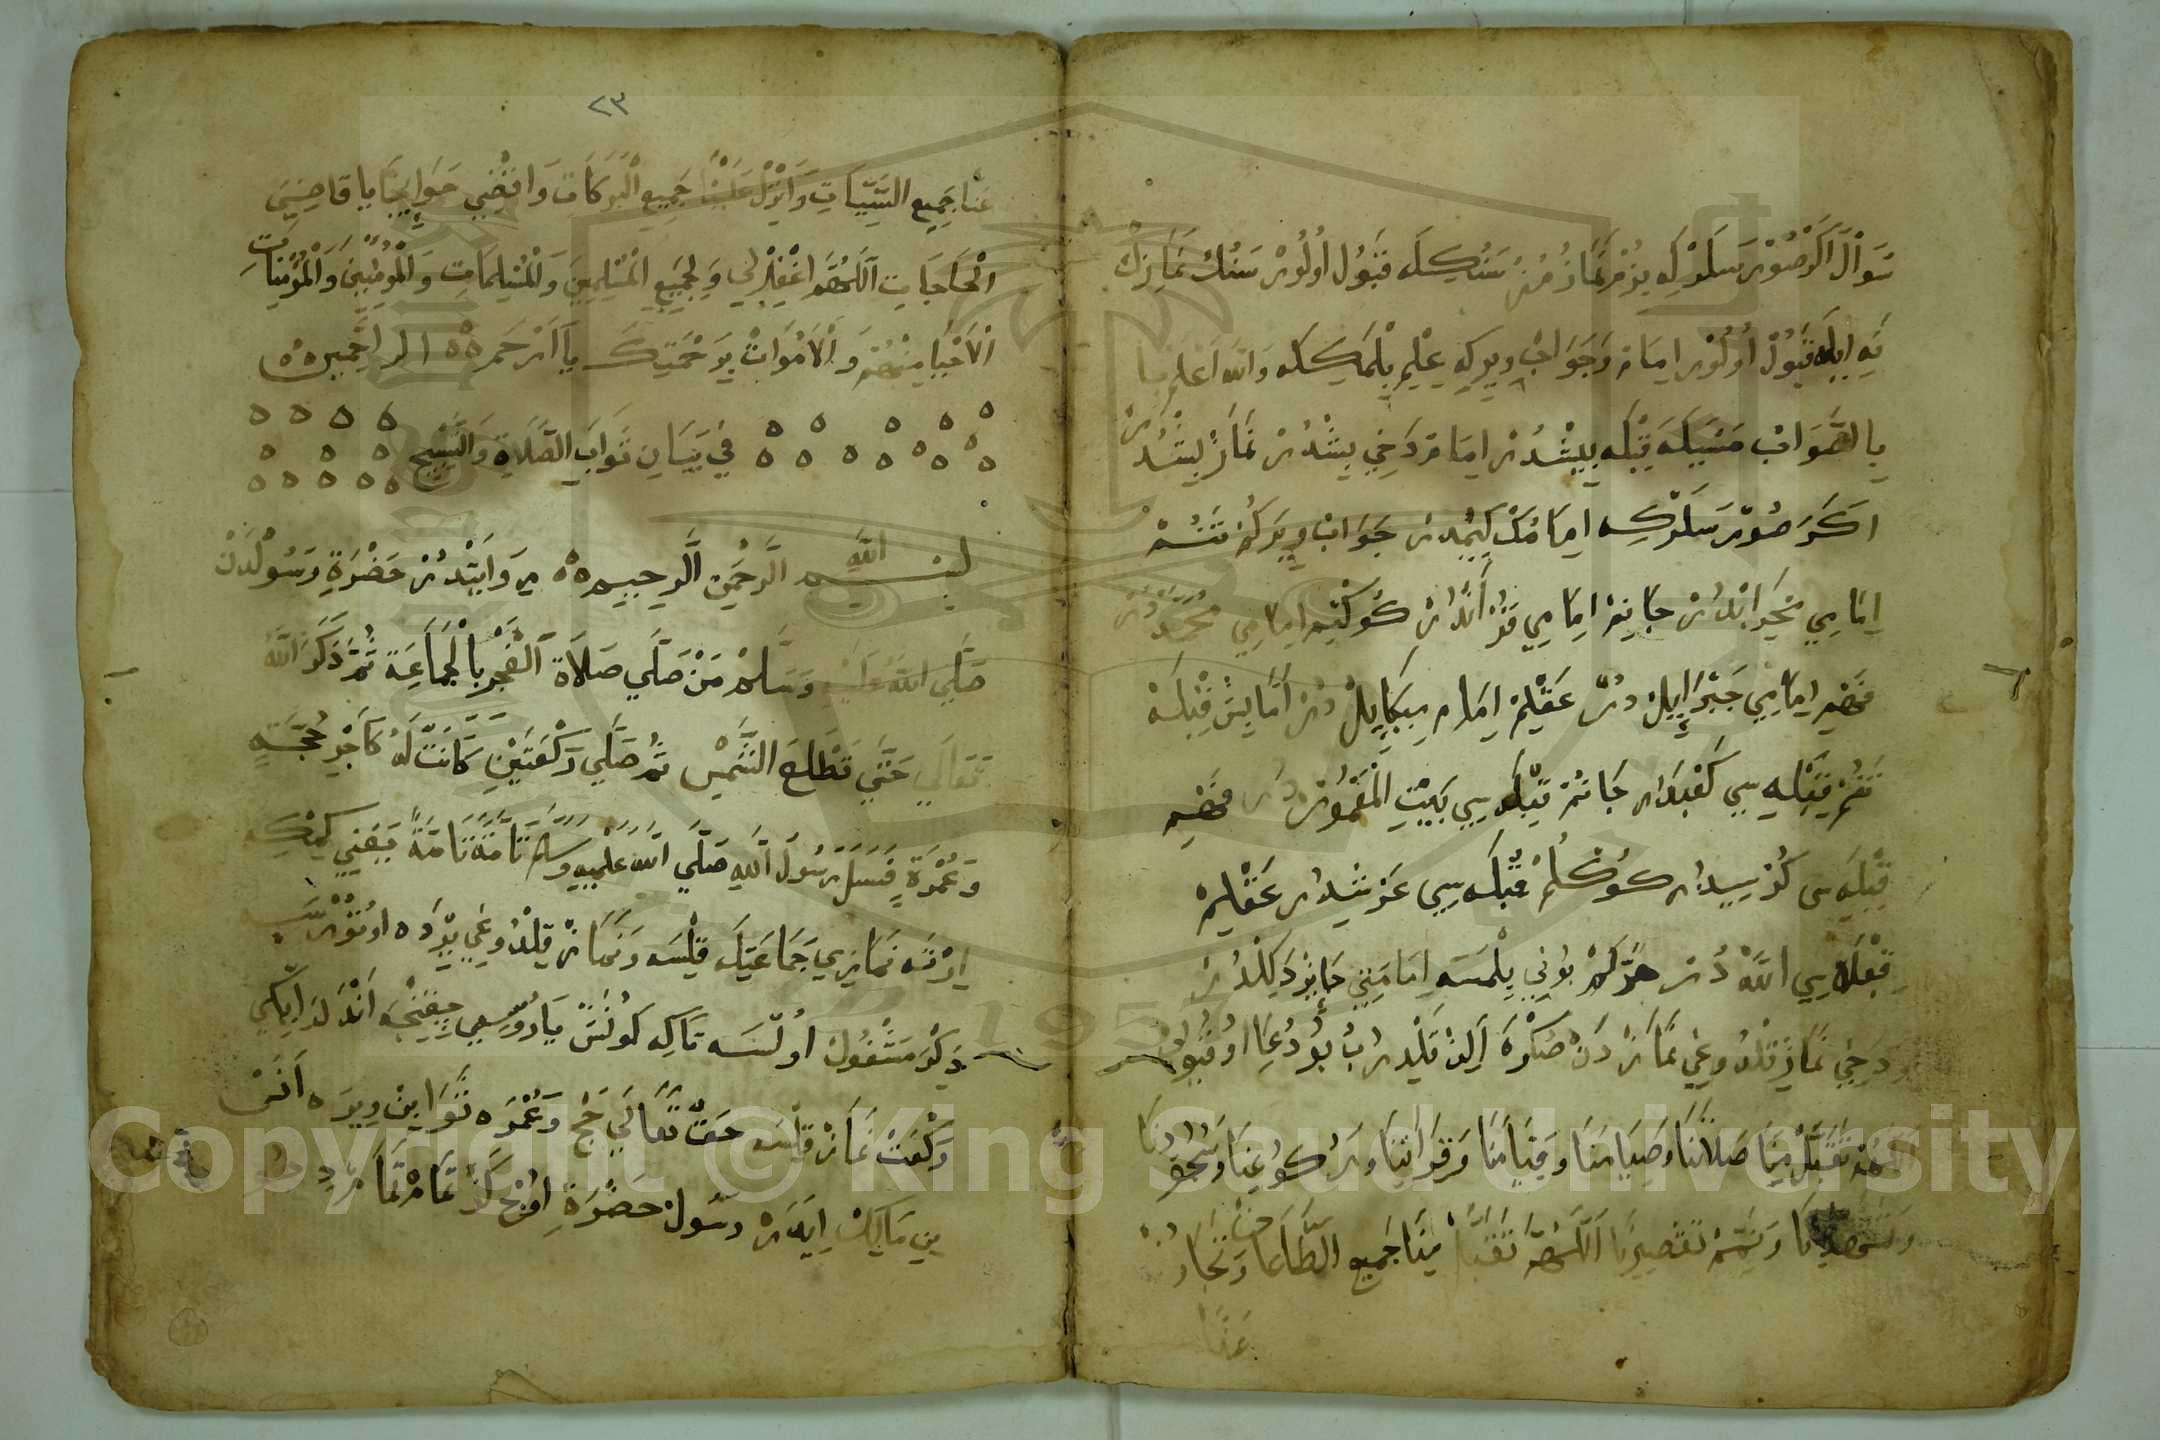 سَوْاَلْ اَكَرْ صُوْرَسَلَرْكِه بِزُمْ نَمَازُمُزْ سَنُكِلَه قَبُولْ اُولُورْ سَنُكْ نَمَازِكْ
نَه ايلَه قَبُولْ اُولُورْ اِمَامْ دَ جَوَابْ وِيرِكِه عِلِمْ بِلْمَكِلَه وَاللهُ اَعْلَمُ
بِالصَّوَابْ مَسْئَلَه قِبْلَه بِيشْدُرْ اِمَامْ دَخِي بِيشْدُرْ نَمَازْ بِيشْدُرْ
اَكَرْ صُورْسَلَرْكِه اِمَامُكْ كِيمْدُرْ جَوَابْ وِيرَكِه تَنُمْ
اِمَامِي جَانِمْ اِمَامِي قُرْآنْدُرْ كُوكْلُمْ اِمَامِي مُحَمَّدْدُرْ
فَهْمِمْ اِمَامِي جَبْرَائِيلْ دُرْ عَقْلِمْ اِمَامِ مِيكَائِيلْ دُرْ اَمَّا بِيشْ قِبْلَه
تَنُمْ قِبْلَه سِي كَعْبَدُرْ جَانُمْ قِبْلَه سِي بَيْتِ الْمَعْمُورْ دُرْ فَهْمِمْ
قِبْلَه سِي كُرْسِيدُرْ كُوكْلُمْ قِبْلَه سِي عَرْشِدُرْ عَقْلِمْ
قِبْلَه سِي اللهْ دُرْ هَرْكِمْ بُونِي بِلْمَسَه اِمَامَتِي جَائِزْ دَكِلْدُرْ
وَدَخِي نَمَازْ قِلْدُوغِي نَمَازْ دَنْ صُكْرَه اَلِنْ قَلْدِرُبْ بُو دُعَا اُوقُيُوبْ
اَللّٰهُمَّ تَقَبَّلْ مِنَّا صَلَاتَنَا وَصِيَامَنَا وَقِيَامَنَا وَقِرَاتَنَا وَرُكُوعَنَا وَسُجُودَنَا
تَقْصِيرَنَا اَللّٰهُمَّ تَقَبَّلْ مِنَّا جَمِيعَ الطَّاعَاتِ وَتَجَاوَزْ
عَنَّا
٢٣
عَنَّا جَمِيعَ السَّيِّئَاتِ وَاَنْزِلْ عَلَيْنَا جَمِيعَ الْبَرَكَاتِ وَاقْضِي حَوَائِجَنَا يَا قَاضِيَ
الْحَاجَاتِ اَللّٰهُمَّ اغْفِرْلِي وَلِجَمِيعِ الْمُسْلِمِينَ وَالْمُسْلِمَاتِ وَالْمُؤْمِنِينَ وَالْمُؤْمِنَاتِ
اَلْاَحْيَا مِنْهُمْ وَالْاَمْوَاتْ بِرَحْمَتِكَ يَا اَرْحَمَ الرَّاحِمِينَ
فِي بَيَانِ ثَوَابِ الصَّلَاةِ وَالتَّسْبِيحِ
بِسْمِ اللهِ الرَّحْمٰنِ الرَّحِيمِ رِوَايَتْدُرْ حَضْرَةِ رَسُولْدَنْ
صَلَّي اللهُ عَلَيْهِ وَسَلَّمْ مَنْ صَلَّي صَلَاةَ الْفَجْرِ بِالْجَمَاعَةِ ثُمَّ ذَكَرَ اللهَ
تَعَالَي حَتَّي تَطْلَعَ الشَّمْسُ ثُمَّ صَلَّي رَكْعَتَيْنِ كَانَتْ لَهُ كَاَجْرِ حُجَّةٍ
وَعُمْرَةٍ رَسُولُ اللهِ صَلَّي اللهُ عَلَيْهِ وَسَلَّمَ تَامَّةً تَامَّةً يَعْنِي كِمْكِه
اِرْتَه نَمَازِي جَمَاعَتِلَه قِلْسَه وَنَمَازْ قِلْدُوغِي يِرْدَه اُوتُورْسَه
ذِكْرَ مَشْغُولْ اُولْسَه تَاكِه كُونَشْ چِقِنْجَه اَنْدَنْ اِيكِي
رَكْعَتْ نَمَازْ قِلْسَه حَقْ تَعَالَي حَجْ وَعُمْرَه ثَوَابِنْ وِيرَه اَنَسْ
بِنْ مَالِكْ اِيدَرْ رَسُولْ حَضْرَةِ اُوچْ كَزْ تَمَامْ تَمَامْ دِدِي